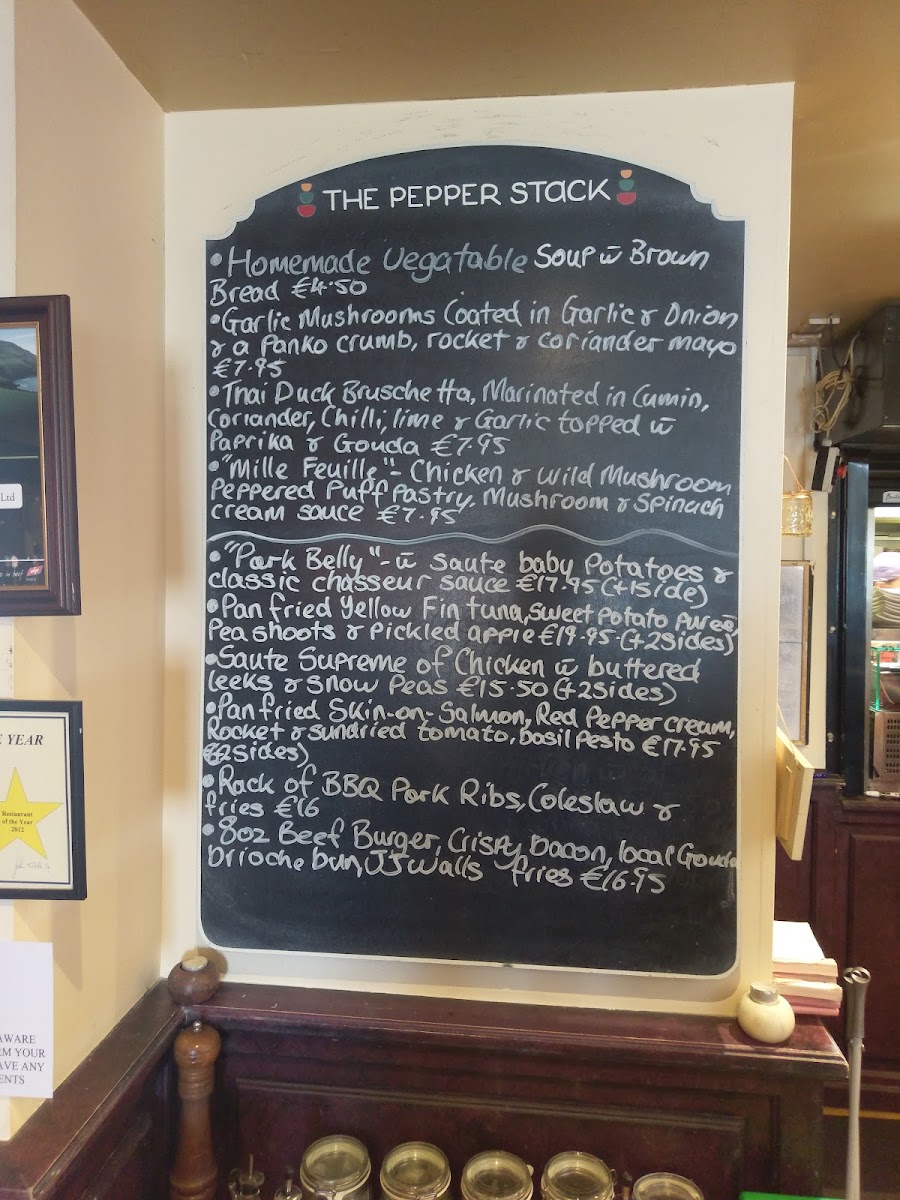 THE PEPPER STACK
•Homemade Vegatable Soup w̄ Brown
Bread €4.50
•Garlic Mushrooms Coated in Garlic & Onion
& a Panko crumb, rocket & coriander mayo
€7.95
•Thai Duck Bruschetta, Marinated in Cumin,
Coriander, Chilli, lime & Garlic topped w̄
Paprika & Gouda €7.95
•"Mille Feuille"- Chicken & Wild Mushroom
Peppered Puff Pastry, Mushroom & Spinach
cream sauce €7.95
•"Pork Belly"- w̄ saute baby Potatoes &
classic chasseur sauce €17.95 (+1side)
•Pan fried Yellow Fin tuna, sweet potato pureé,
Peashoots & Pickled apple €19.95 (+2sides)
•Saute Supreme of Chicken w̄ buttered
leeks & snow Peas €15.50 (+2sides)
•Pan fried Skin-on-Salmon, Red Pepper cream,
Rocket & sundried tomato, basil pesto €17.95
(+2sides)
•Rack of BBQ Pork Ribs, Coleslaw &
fries €16
•8oz Beef Burger, Crispy bacon, local Gouda
brioche bun, JJ Walls fries €16.95
Ltd
E YEAR
Restaurant
of the Year
2012
AWARE
RM YOUR
AVE ANY
ENTS